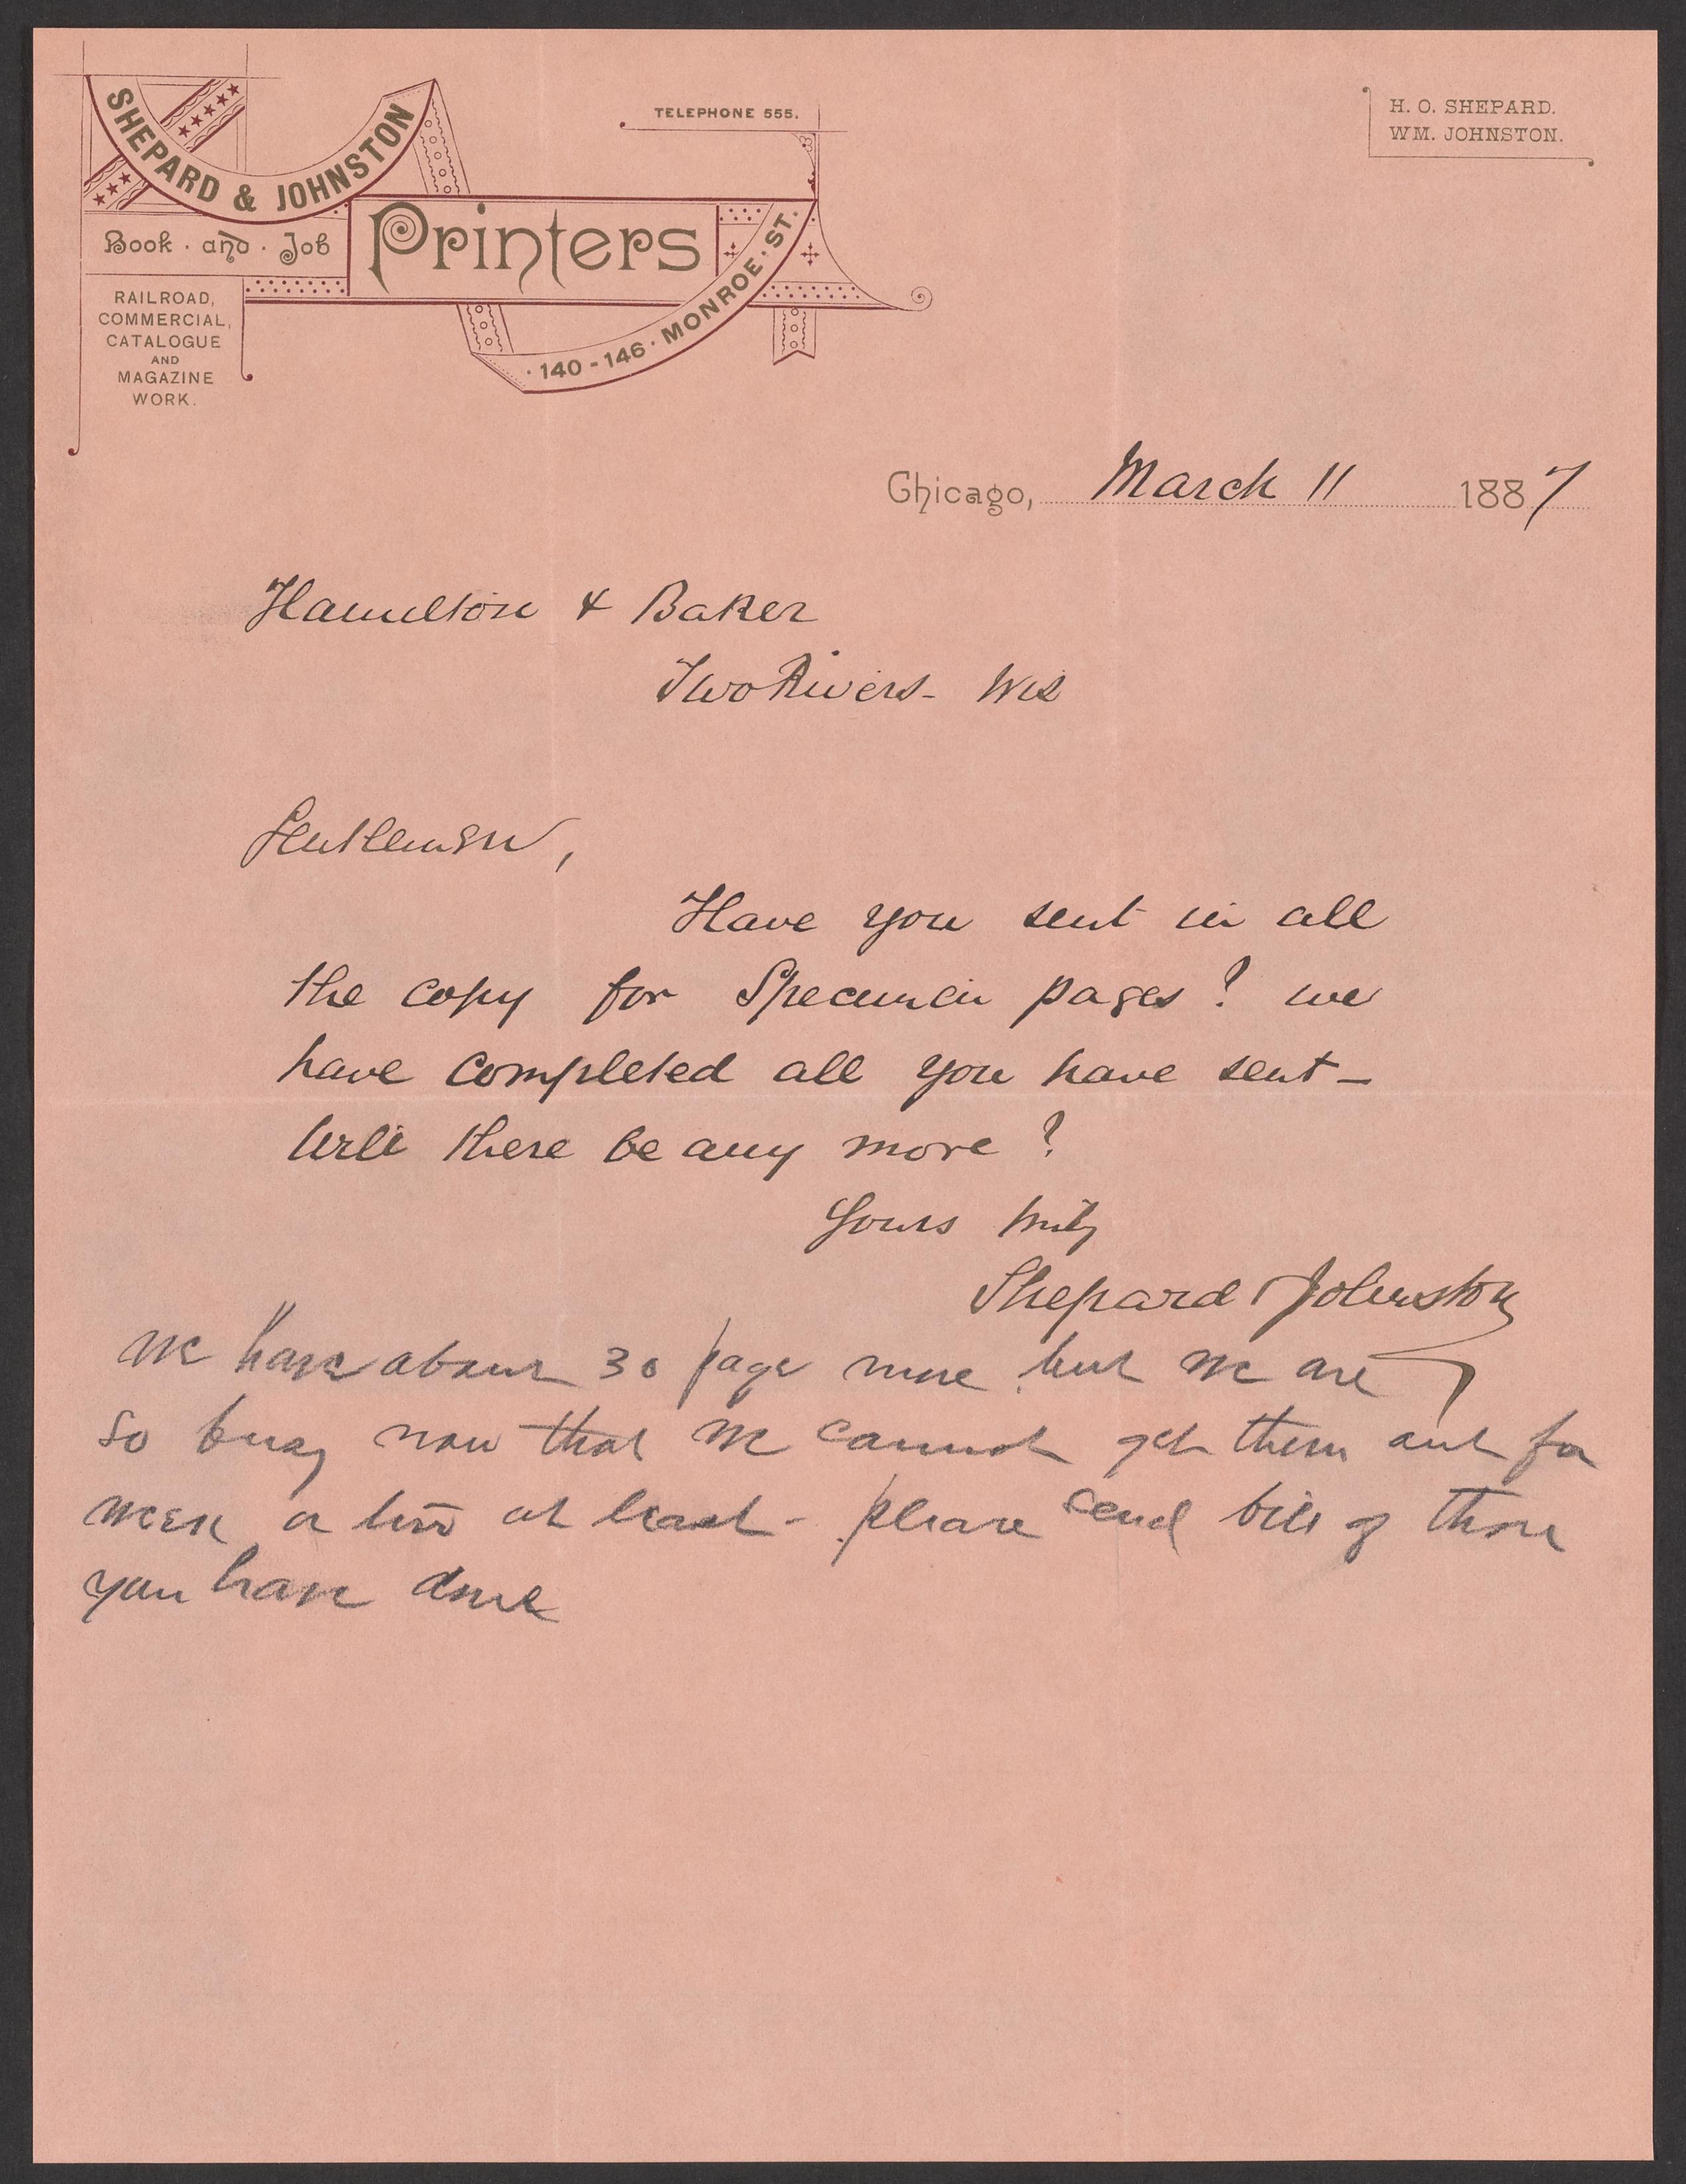 SHEPARD & JOHNSTON
Book · and · Job
Printers
140-146 · MONROE · ST.
TELEPHONE 555.
RAILROAD,
COMMERCIAL,
CATALOGUE
AND
MAGAZINE
WORK.
H. O. SHEPARD.
WM. JOHNSTON.
Chicago, March 11 1887
Hamilton & Baker
Two Rivers - Wis
Gentlemen,
Have you sent in all
the copy for Specimen pages? we
have completed all you have sent -
Will there be any more?
Yours truly
Shepard Johnston
We have about 30 page more but we are
so busy now that we cannot get them out for
week or two at least - please send bill of those
you have done